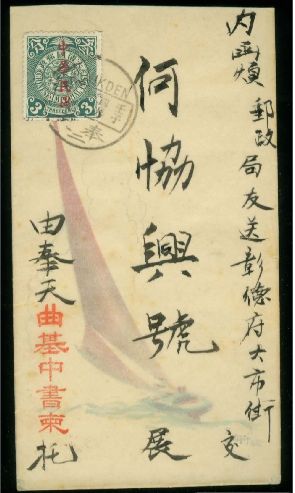 内函煩郵政局友送彰德府大市街
交
何協興號
展
由奉天曲基中書柬托
中華民國
3
3
MUKDEN
奉